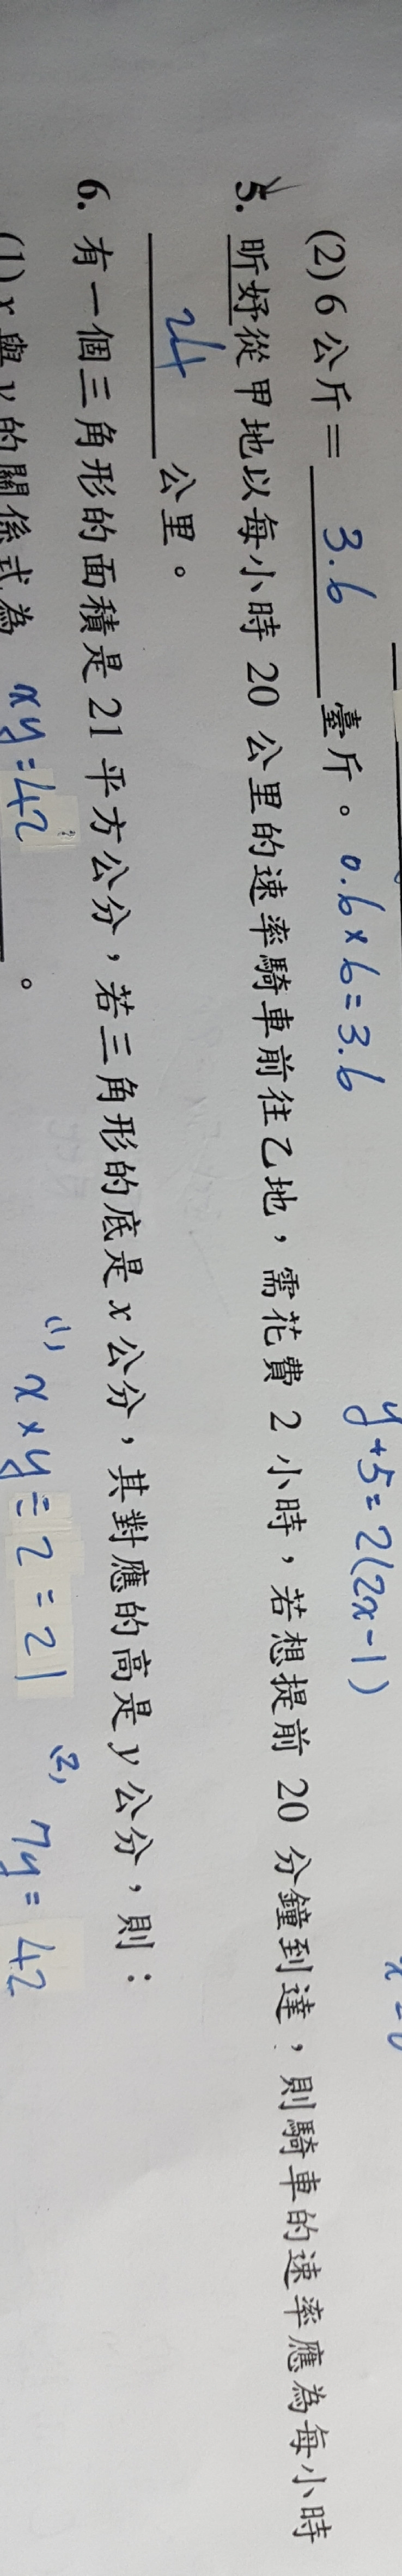 y+5=2(2x-1)
(2) 6 公斤= 3.6 臺斤。 0.6×6=3.6
5. 昕妤從甲地以每小時 20 公里的速率騎車前往乙地，需花費 2 小時，若想提前 20 分鐘到達，則騎車的速率應為每小時
24 公里。
6. 有一個三角形的面積是 21 平方公分，若三角形的底是 x 公分，其對應的高是 y 公分，則：
(1) x 與 y 的關係式為 xy=42 。
(1) x×y÷2=21 (2) 7y=42